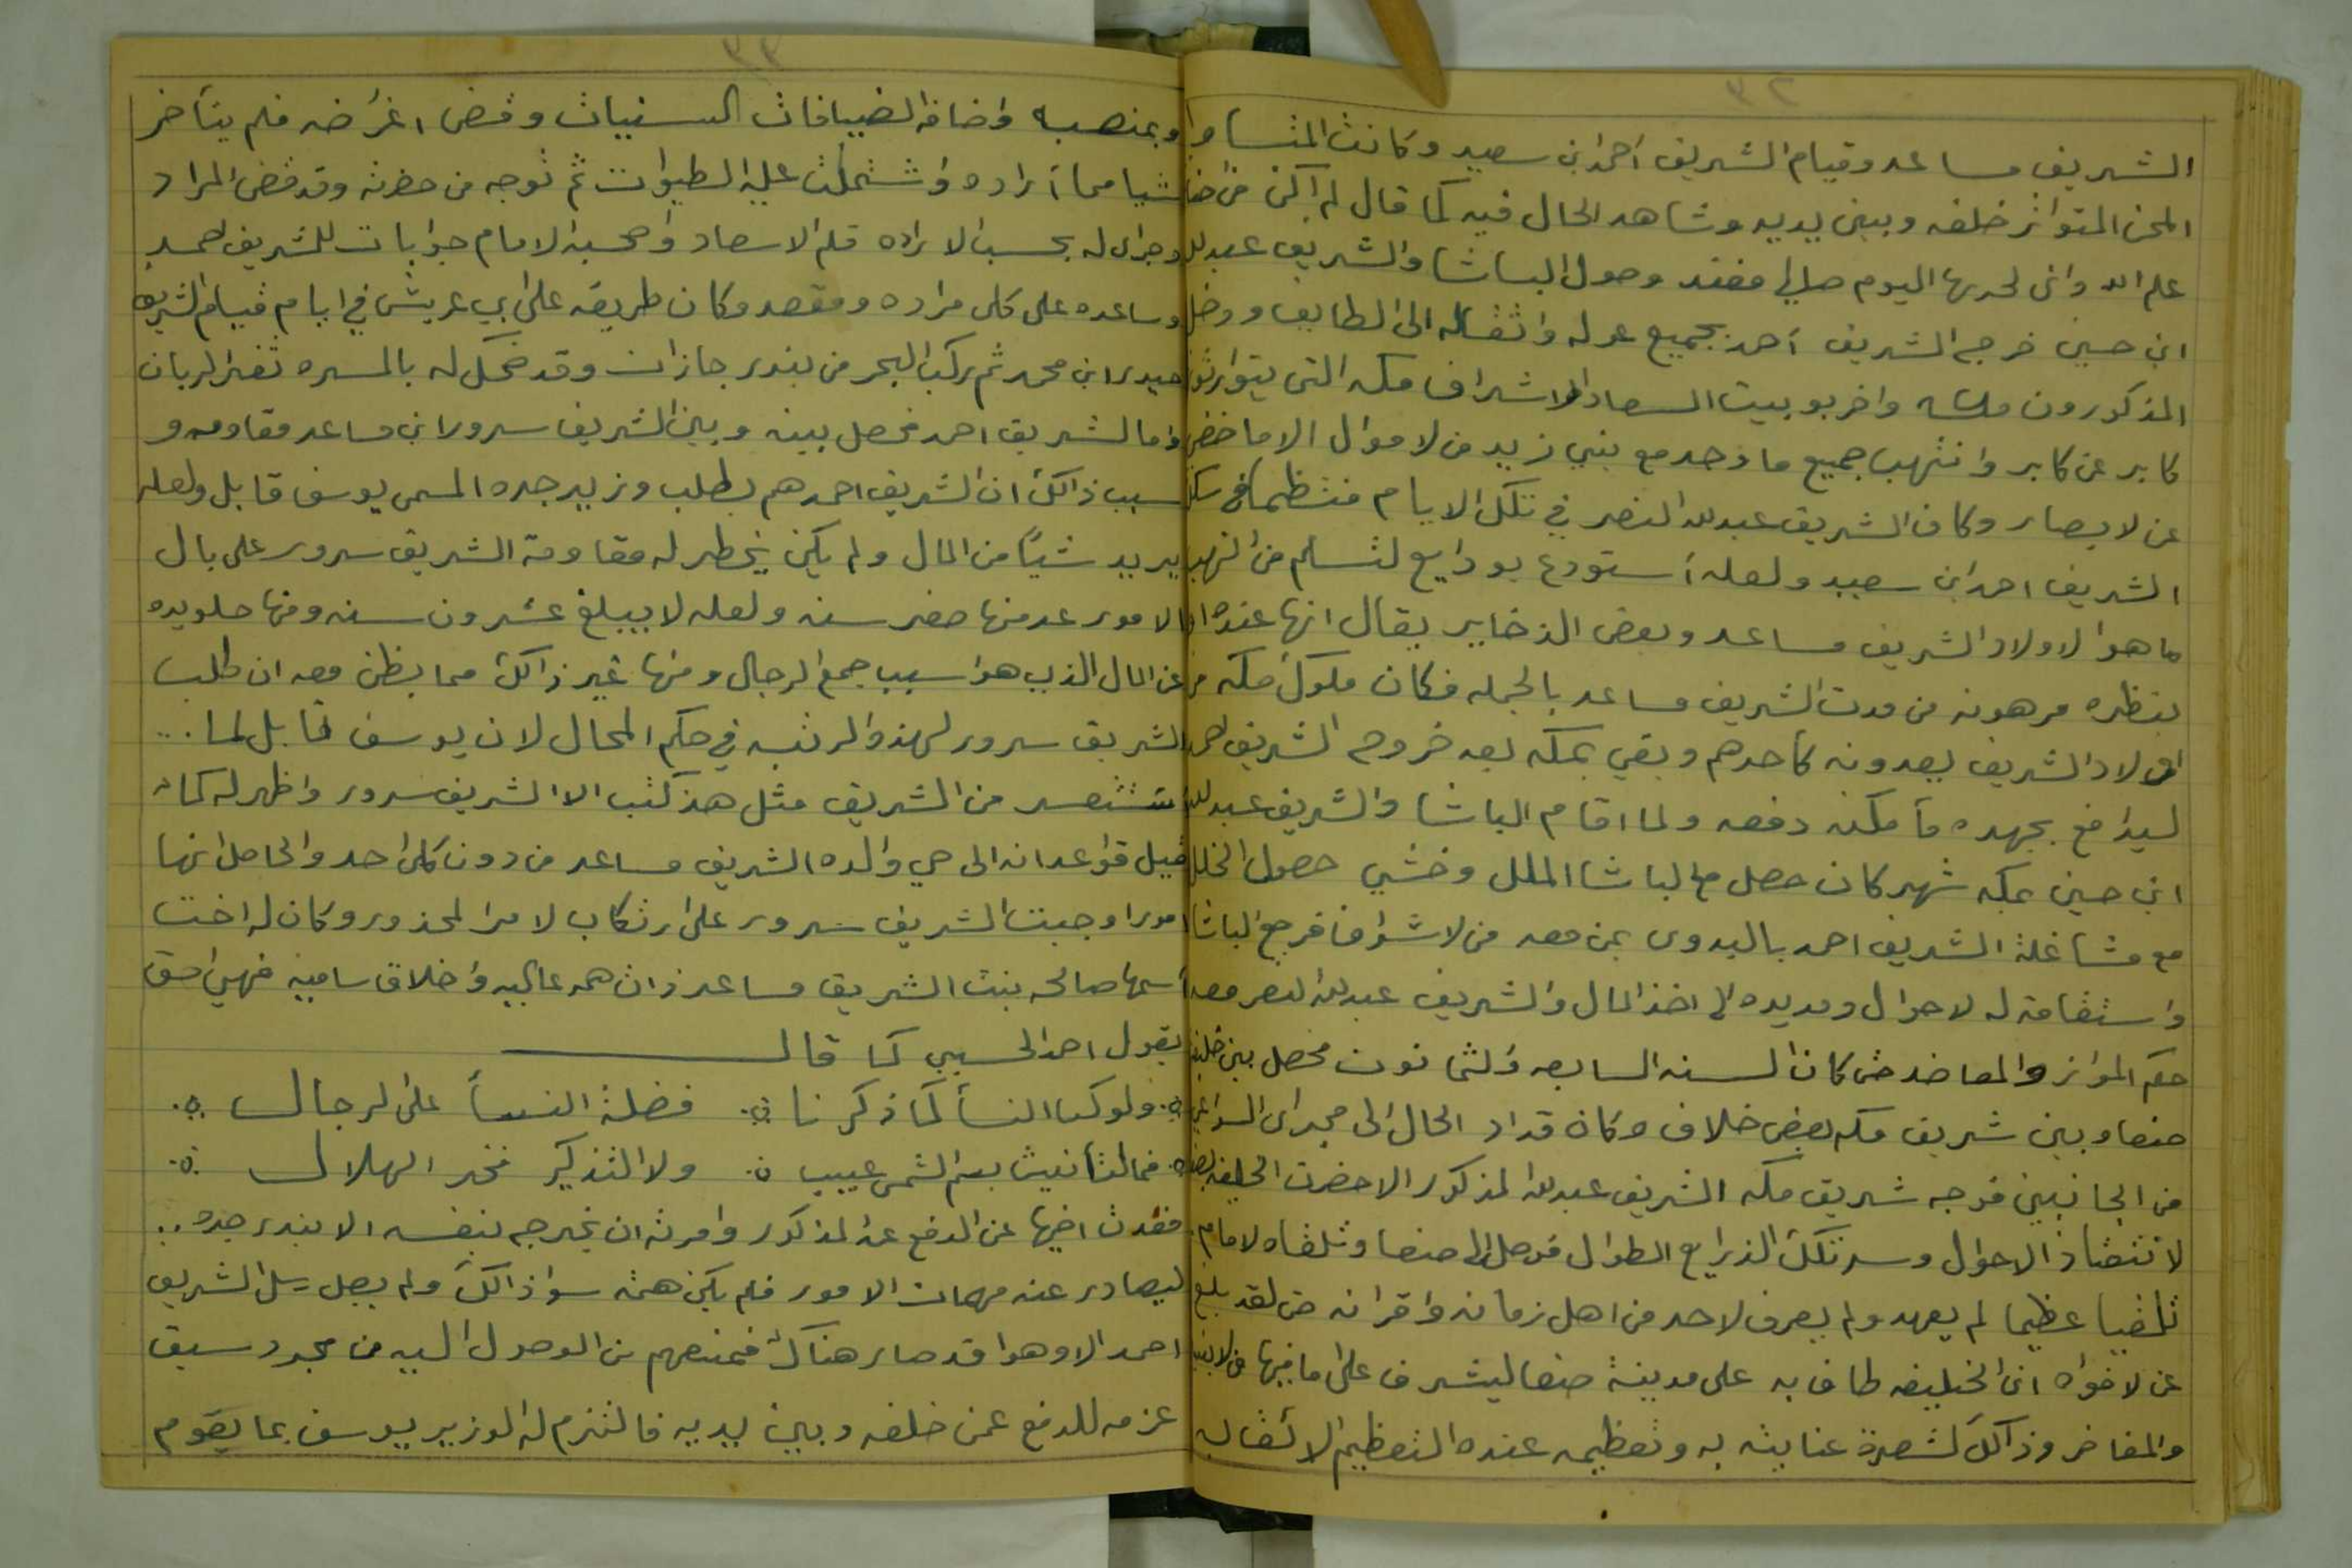 ٣٢
الشريف مساعد وقيام الشريف احمد ابن سعيد وكانت المنساوا
المحن المتواتر خلفه وبين يديه وشاهد الحال فيه كما قال لم اكن من
علم الله واني لحربها اليوم صالي فعند وصول الباشا والشريف عبدلله
ابن حسين خرج الشريف أحمد بجميع عوله واثقاله الى الطايف ودخل
المذكورون مكه واخربو بيت السعاده لاشراف مكه التي يتوارثون
كابر عن كابر وانتهب جميع ما وجد مع بني زيد من لاموال الا ما خفي
عن لابصار وكان الشريف عبدلله النصر في تلك الايام منتظما في سلك
الشريف احمد ابن سعيد ولعله أستودع بودايع لتسلم من النهب
ما هوا لاولاد الشريف مساعد وبعض الذخاير يقال انها عنده
بنظره مرهونه من مدت الشريف مساعد بالجمله فكان ملوك مكه من
اولاد الشريف يعدونه كأحدهم وبقي بمكه بعد خروج الشريف احمد
ليدافع بجهده ما مكنه دفعه ولما اقام الباشا والشريف عبدلله
ابن حسين بمكه شهر كان حصل مع الباشا الملل وخشي حصول الخلل
مع مشاغلة الشريف احمد بالبدوى بمن معه من لاشراف فرجع الباشا
واستقامة له لاحوال ومد يده الى اخذ المال والشريف عبدلله النصر معه
حكم الموازر والمعاضد حتى كان السنه السابعه والثمانون فحصل بين خليفة
صنعا وبين شريف مكه بعض خلاف وكان قد اد الحال الى مجراى السواعي
من الجانبين فوجه شريف مكه الشريف عبدلله المذكور الا حضرت الخليفه
لانتضاد الاحوال وسد تلك الذرايع الطوال فوصل الى صنعا وتلقاه لامام
تلقيا عظيما لم يعهد ولم يعرف لاحد من اهل زمانه واقرانه حتى لقد بلغ
عن لافواه ان الخليفه طاف به على مدينة صنعا ليشرف على ما فيها من
والمفاخر وذالك لشدة عنايته به وتعظيمه عنده التعظيم الا
٣٣
وبمنصبه واضافه الضيافات السنيات وقضى اغرضه فلم يتأخر
شيا مما أراده واشتملت عليه الطيوات ثم توجه من حضرته وقد قضى المراد
وجرا له بحسب الاراده قلم الاسعاد واصحبه الامام جوابات للشريف احمد
وساعده على كل مراده ومقصد وكان طريقه على ابي عريش في ايام قيام الشريف
حيدر ابن محمد ثم ركب البحر من بندر جازان وقد ضحك له بالمسره ثغر الزمان
واما الشريف احمد فحصل بينه وبين الشريف سرور ابن مساعد مقاومه و
سبب ذالك ان الشريف احمد هم بطلب وزير جده المسمى يوسف قابل ولعله
يريد شيئا من المال ولم يكن يخطر له مقاومة الشريف سرور على بال
لامور عد منها صغر سنه ولعله لا يبلغ عشرون سنه ومنها خلو يده
عن المال الذي هوا سبب جمع الرجال ومنها غير ذالك مما يظن معه ان طلب
الشريف سرور لهذه الرتبه في حكم المحال لان يوسف قابل لما ...
من الشريف مثل هذ كتب الا الشريف سرور واظهر له كما
قبل قواعد انه الى حي والده الشريف مساعد من دون كل احد والحاصل انها
امور اوجبت الشريف سرور على ارتكاب لامر المحذور وكان له اخت
أسمها صالحه بنت الشريف مساعد ذات همه عاليه واخلاق ساميه فهي احق
بقول احمد الحسيبي كما قال
ولو كن النسأ كما ذكرنا ٪ فضلة النسأ على الرجال
فما التأنيث بسم الشمس عيب ٪ ولا التذكير فخر الهلال
فقدت اخيها عن الدفع عن المذكور وامرته ان يخرج بنفسه الا بندر جده ..
ليصادر عنه مهمات الامور فلم يكن همته سوا ذالك ولم يصل رسل الشريف
احمد الا وهوا قد صار هناك فمنعهم من الوصول اليه من مجرد سبق
عزمه للدفع عمن خلفه وبين يديه فالتزم له الوزير يوسف بما يقوم